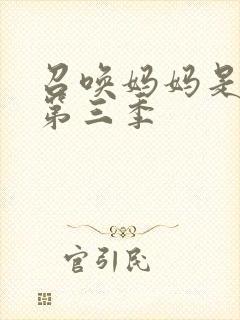 召唤妈妈是
第三季
官引民